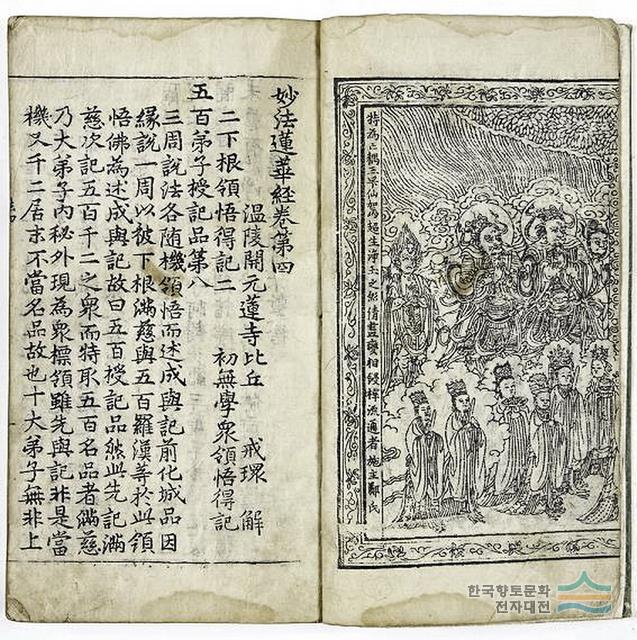 特為亡耦王仙駕超生淨土之倩畫變相鋟梓流通者施主鄭氏
妙法蓮華經卷第四
溫陵開元蓮寺比丘 戒環 解
二下根領悟得記二 初無學衆領悟得記
五百弟子授記品第八
三周說法各随機領悟而述成與記前化城品因
縁說一周以彼下根滿慈與五百羅漢等於此領
悟佛為述成與記故曰五百授記品然此先記滿
慈次記五百千二之衆而特取五百名品者滿慈
乃大弟子內秘外現為衆標領雖先與記非是當
機又千二居末不當名品故也十大弟子無非上
한국향토문화
전자대전